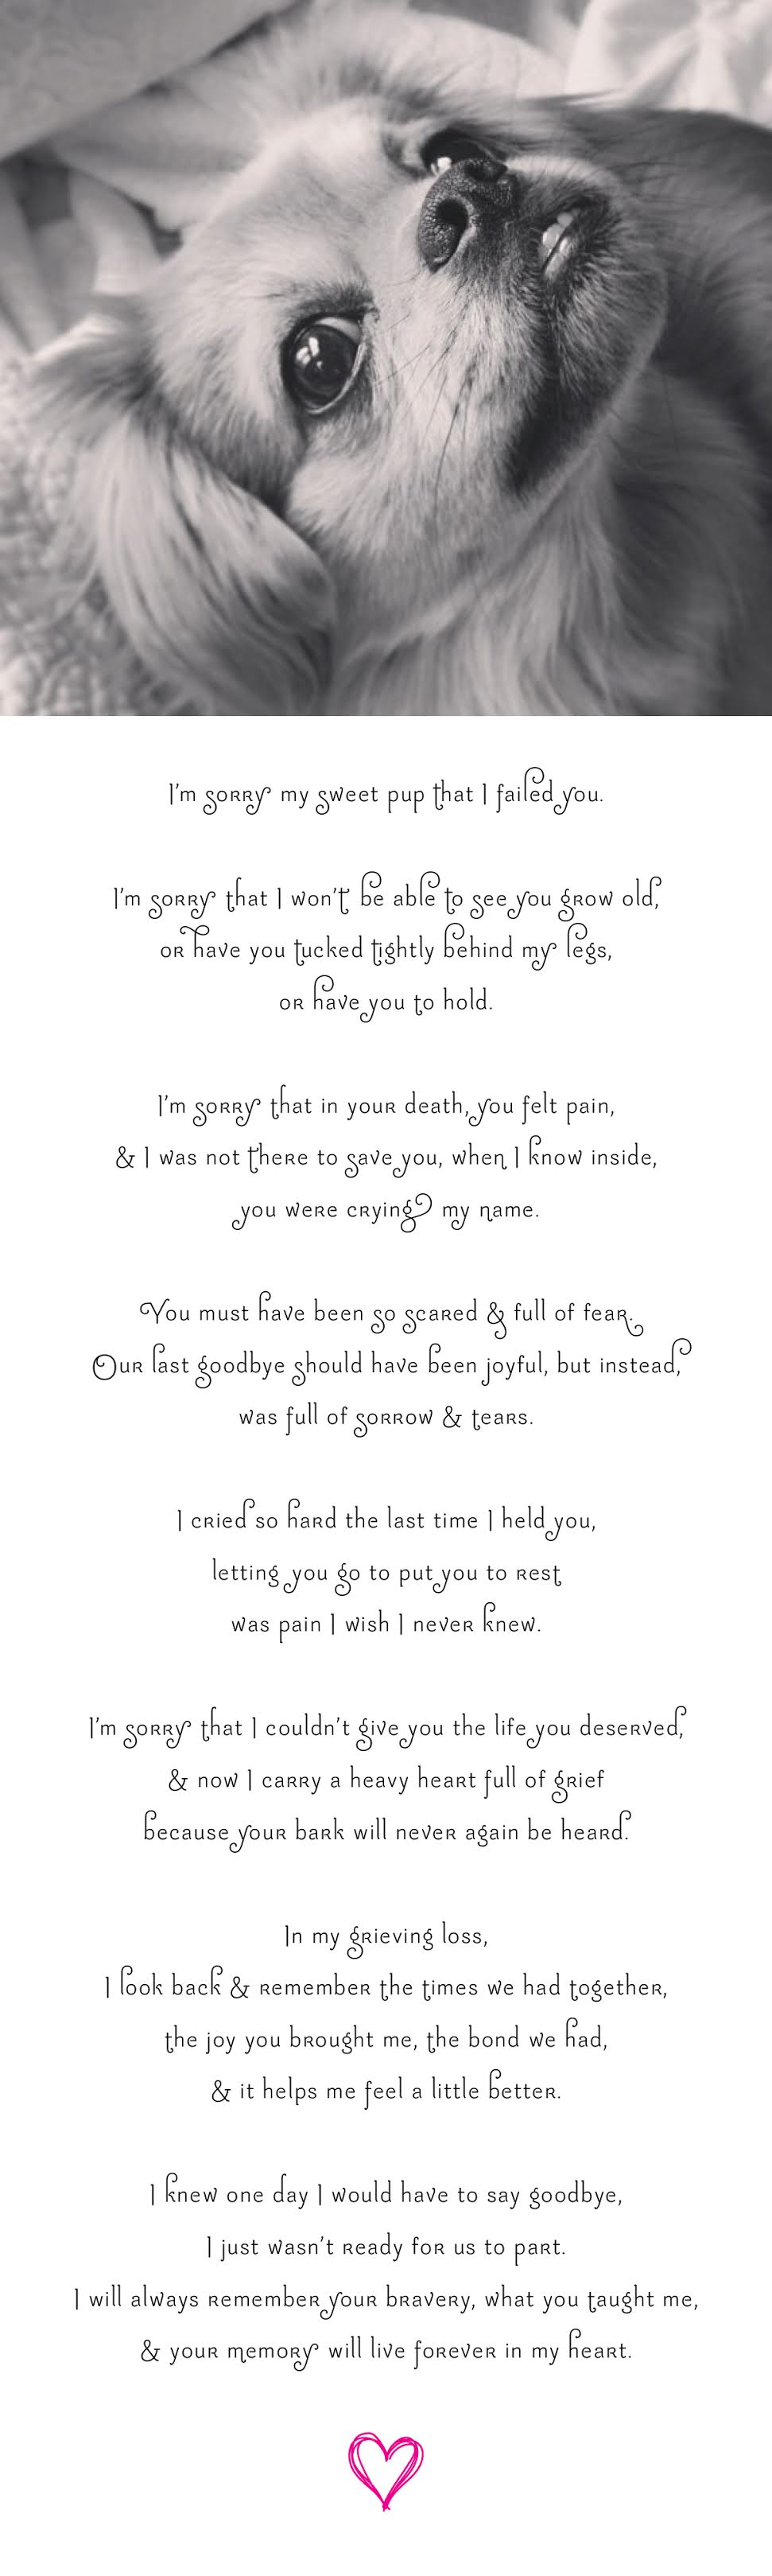 I'm sorry my sweet pup that I failed you.
I'm sorry that I won't be able to see you grow old,
or have you tucked tightly behind my legs,
or have you to hold.
I'm sorry that in your death, you felt pain,
& I was not there to save you, when I know inside,
you were crying my name.
You must have been so scared & full of fear.
Our last goodbye should have been joyful, but instead,
was full of sorrow & tears.
I cried so hard the last time I held you,
letting you go to put you to rest
was pain I wish I never knew.
I'm sorry that I couldn't give you the life you deserved,
& now I carry a heavy heart full of grief
because your bark will never again be heard.
In my grieving loss,
I look back & remember the times we had together,
the joy you brought me, the bond we had,
& it helps me feel a little better.
I knew one day I would have to say goodbye,
I just wasn't ready for us to part.
I will always remember your bravery, what you taught me,
& your memory will live forever in my heart.